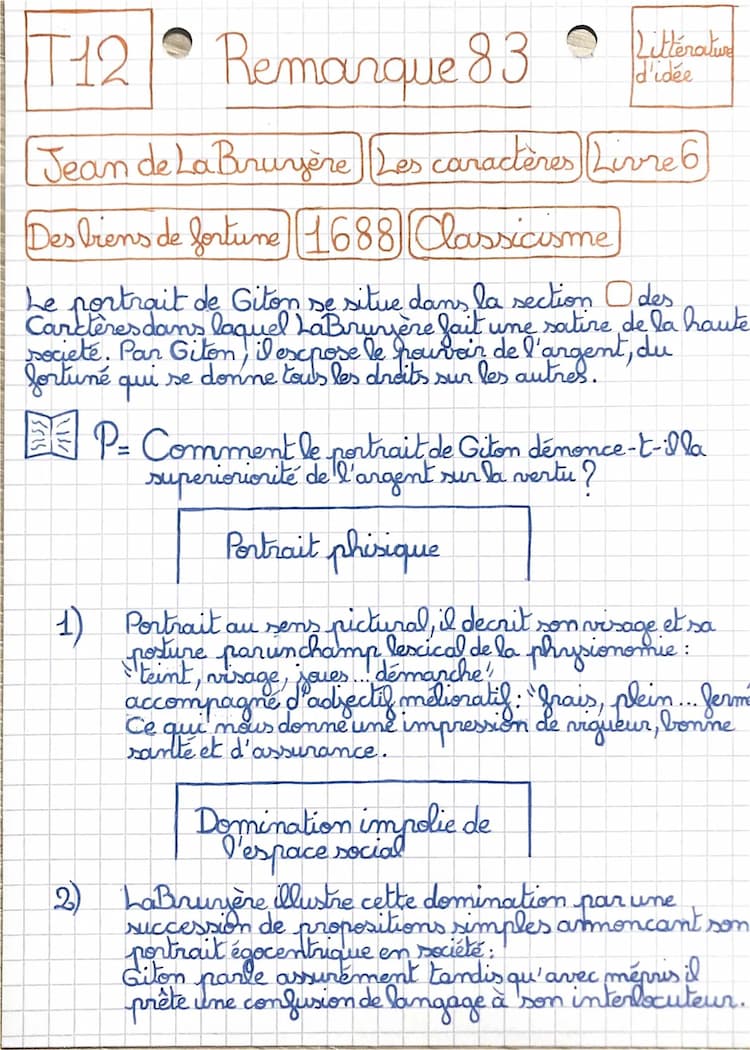 T12
Remarque 83
Littérature
d'idée
Jean de La Bruyère Les caractères Livre 6
Des biens de fortune 1688 Classicisme
Le portrait de Giton se situe dans la section des
Carctères dans laquel La Bruyère fait une satire de la haute
societé. Par Giton, il expose le pouvoir de l'argent, du
fortuné qui se donne tous les droits sur les autres.
P= Comment le portrait de Giton dénonce-t-il la
superioriorité de l'argent sur la vertu ?
Portrait phisique
1) Portrait au sens pictural, il decrit son visage et sa
posture par un champ lescical de la physionomie :
"teint, visage, joues... démarche"
accompagné d'adjectif mélioratif : "frais, plein... ferme
Ce qui nous donne une impression de vigueur, bonne
santé et d'assurance.
Domination impolie de
l'espace social
2) La Bruyère illustre cette domination par une
succession de propositions simples annoncant son
portrait égocentrique en société :
Giton parle assurément tandis qu'avec mépris il
prête une confusion de langage à son interlocuteur.